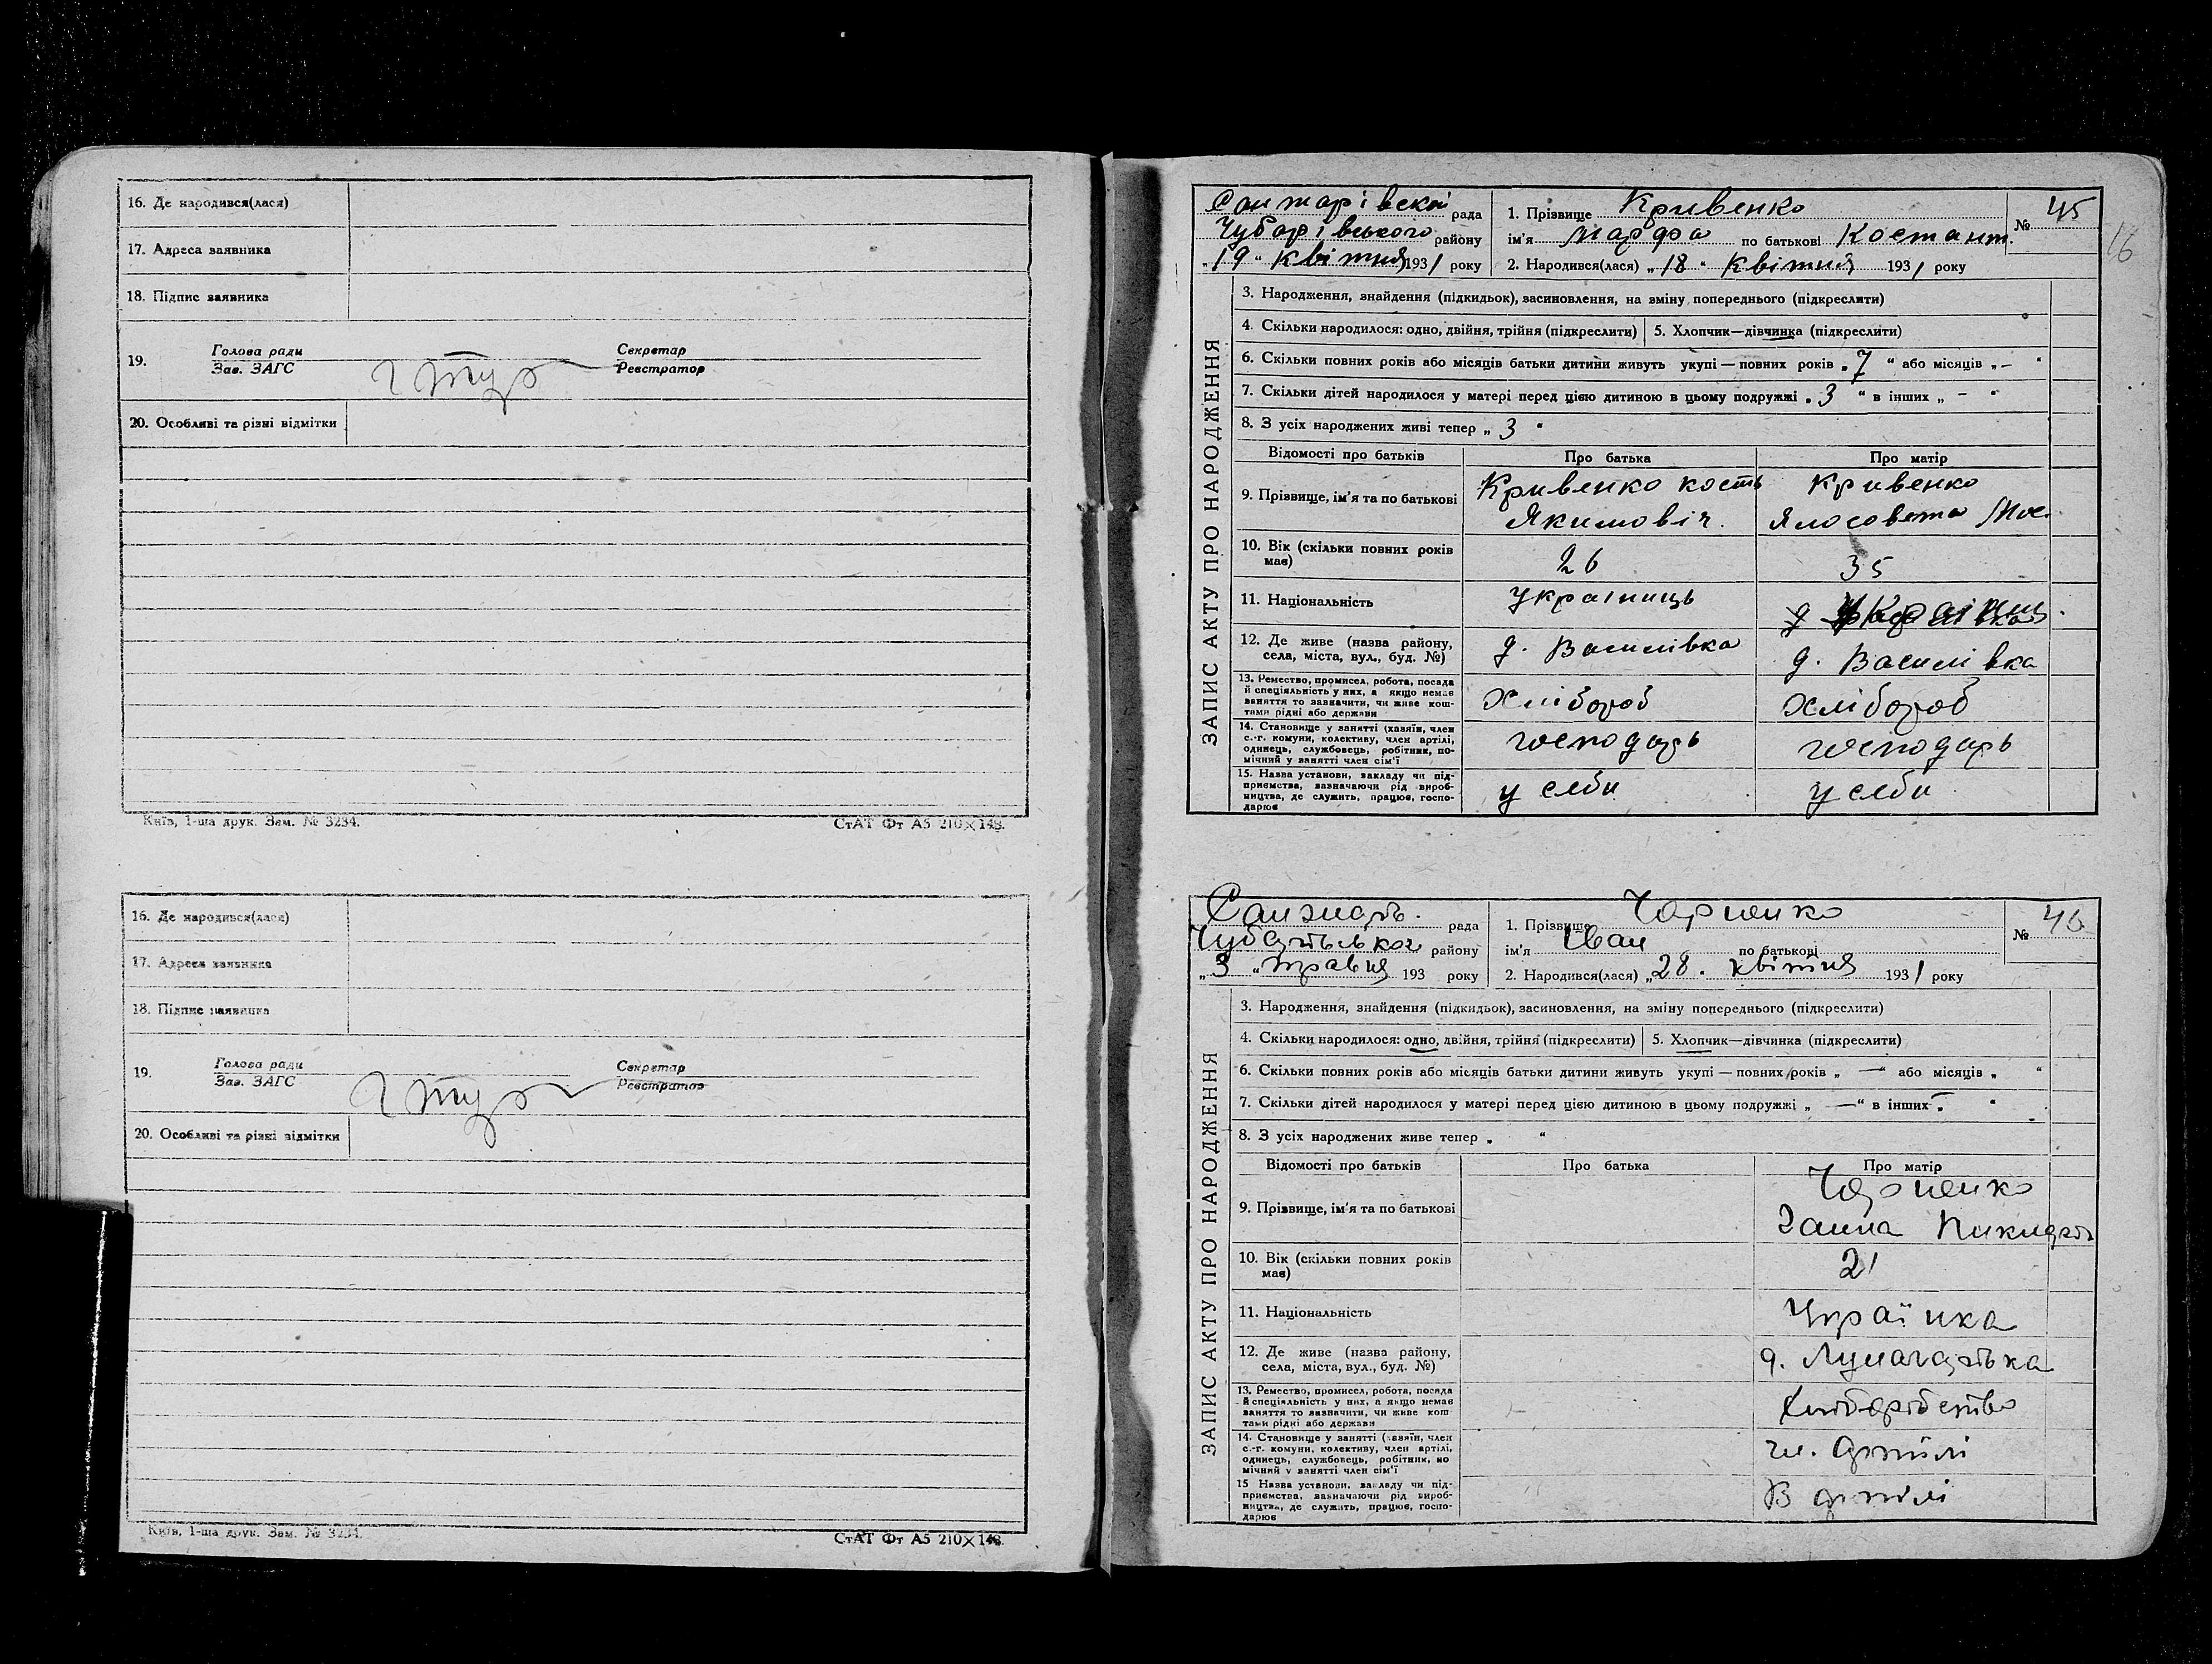 16. Де народився(лася)
17. Адреса заявника
18. Підпис заявника
19. Голова ради
Зав. ЗАГС
Секретар
Реєстратор
20. Особливі та різні відмітки
Київ, 1-ша друк. Зам. № 3234.
СтАТ Фт А5 210×148.
16. Де народився(лася)
17. Адреса заявника
18. Підпис заявника
19. Голова ради
Зав. ЗАГС
Секретар
Реєстратор
20. Особливі та різні відмітки
Київ, 1-ша друк. Зам. № 3234.
СтАТ Фт А5 210×148.
16
ЗАПИС АКТУ ПРО НАРОДЖЕННЯ
рада
Чубарівського району
„19“ квітня 1931 року
1. Прізвище Кривенко
ім'я Марфа по батькові Костант.
№ 45
2. Народився(лася) „18“ квітня 1931 року
3. Народження, знайдення (підкидьок), засиновлення, на зміну попереднього (підкреслити)
4. Скільки народилося: одно, двійня, трійня (підкреслити) 5. Хлопчик—дівчинка (підкреслити)
6. Скільки повних років або місяців батьки дитини живуть укупі — повних років „7“ або місяців „–“
7. Скільки дітей народилося у матері перед цією дитиною в цьому подружжі „3“ в інших „–“
8. З усіх народжених живі тепер „3“
Відомості про батьків Про батька Про матір
9. Прізвище, ім'я та по батькові
Кривенко кость
Якимовіч.
Кривенко
10. Вік (скільки повних років
має)
26
35
11. Національність
Україниць
12. Де живе (назва району,
села, міста, вул., буд. №)
д. Василівка
д. Василівка
13. Ремество, промисел, робота, посада
й спеціяльність у них, а якщо немає
заняття то зазначити, чи живе кош-
тами рідні або держави
Хлібороб
Хлібороб
14. Становище у занятті (хазяїн, член
с.-г. комуни, колективу, член артілі,
одинець, службовець, робітник, по-
мічний у занятті член сім'ї
господарь
господарь
15. Назва установи, закладу чи під-
приємства, зазначаючи рід вироб-
ництва, де служить, працює, госпо-
дарює
у себи
у себи
ЗАПИС АКТУ ПРО НАРОДЖЕННЯ
рада
району
„3“ травня 193 року
1. Прізвище Чорненко
ім'я Іван по батькові
№ 46
2. Народився(лася) „28. квітня 1931 року
3. Народження, знайдення (підкидьок), засиновлення, на зміну попереднього (підкреслити)
4. Скільки народилося: одно, двійня, трійня (підкреслити) 5. Хлопчик—дівчинка (підкреслити)
6. Скільки повних років або місяців батьки дитини живуть укупі — повних років „—“ або місяців „ “
7. Скільки дітей народилося у матері перед цією дитиною в цьому подружжі „—“ в інших „ “
8. З усіх народжених живе тепер „ “
Відомості про батьків Про батька Про матір
9. Прізвище, ім'я та по батькові
Чорненко
Ганна
10. Вік (скільки повних років
має)
21
11. Національність
Українка
12. Де живе (назва району,
села, міста, вул., буд. №)
д.
13. Ремество, промисел, робота, посада
й спеціяльність у них, а якщо немає
заняття то зазначити, чи живе кош
тами рідні або держави
Хліборобство
14. Становище у занятті (хазяїн, член
с.-г. комуни, колективу, член артілі,
одинець, службовець, робітник, по
мічний у занятті член сім'ї
чл. артілі
15 Назва установи, закладу чи під-
приємства, зазначаючи рід вироб-
ництва, де служить, працює, госпо-
дарює
В артілі